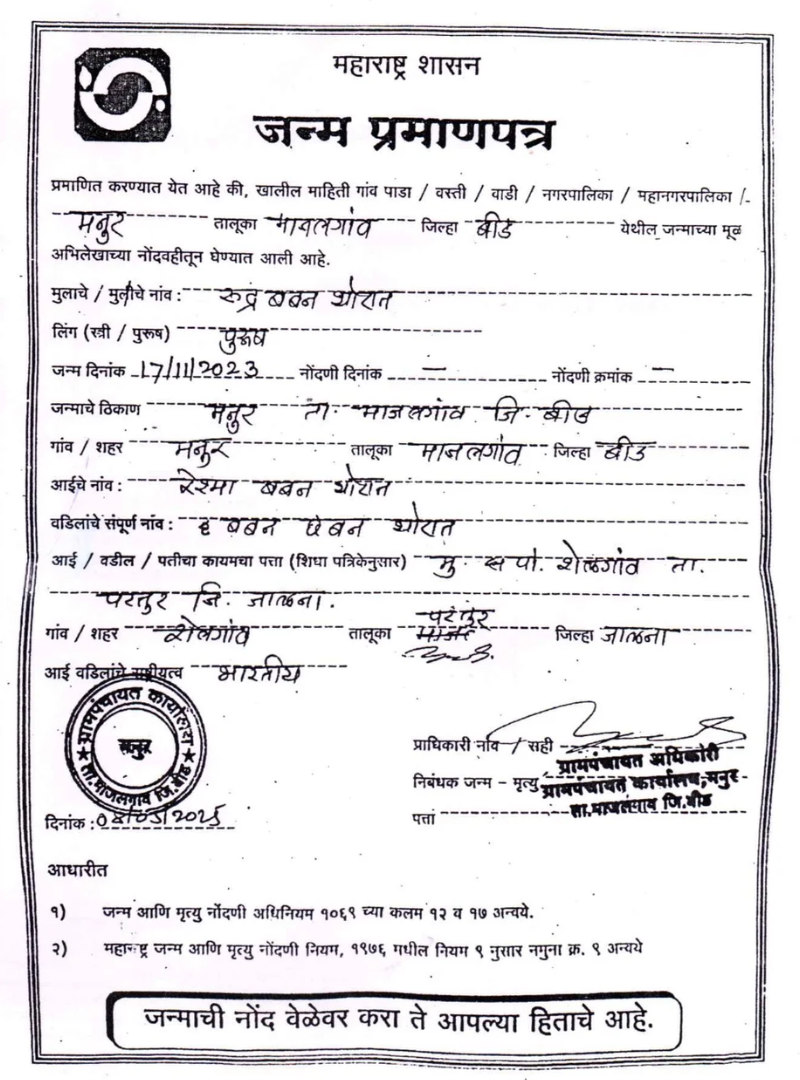 महाराष्ट्र शासन
जन्म प्रमाणपत्र
प्रमाणित करण्यात येत आहे की, खालील माहिती गांव पाडा / वस्ती / वाडी / नगरपालिका / महानगरपालिका /-
मनुर तालूका माजलगांव जिल्हा बीड येथील जन्माच्या मूळ
अभिलेखाच्या नोंदवहीतून घेण्यात आली आहे.
मुलाचे / मुलीचे नांव : रुद्र बबन थोरात
लिंग (स्त्री / पुरूष) पुरूष
जन्म दिनांक 17/11/2023 नोंदणी दिनांक — नोंदणी क्रमांक —
जन्माचे ठिकाण मनुर ता. माजलगांव जि. बीड
गांव / शहर मनुर तालूका माजलगांव जिल्हा बीड
आईचे नांव : रेश्मा बबन थोरात
वडिलांचे संपूर्ण नांव : बबन थोरात
आई / वडील / पतीचा कायमचा पत्ता (शिधा पत्रिकेनुसार) मु. पो. शेलगांव ता.
परतुर जि. जालना.
गांव / शहर शेलगांव तालूका परतुर जिल्हा जालना
आई वडिलांचे राष्ट्रीयत्व भारतीय
ग्रामपंचायत कार्यालय
मनुर
ता.माजलगाव जि.बीड
प्राधिकारी नांव / सही
ग्रामपंचायत अधिकारी
निबंधक जन्म - मृत्यु ग्रामपंचायत कार्यालय, मनुर
ता.माजलगाव जि.बीड
दिनांक : 2025
पत्ता
आधारीत
१) जन्म आणि मृत्यु नोंदणी अधिनियम १०६९ च्या कलम १२ व १७ अन्वये.
२) महाराष्ट्र जन्म आणि मृत्यु नोंदणी नियम, १९७६ मधील नियम ९ नुसार नमुना क्र. ९ अन्वये
जन्माची नोंद वेळेवर करा ते आपल्या हिताचे आहे.